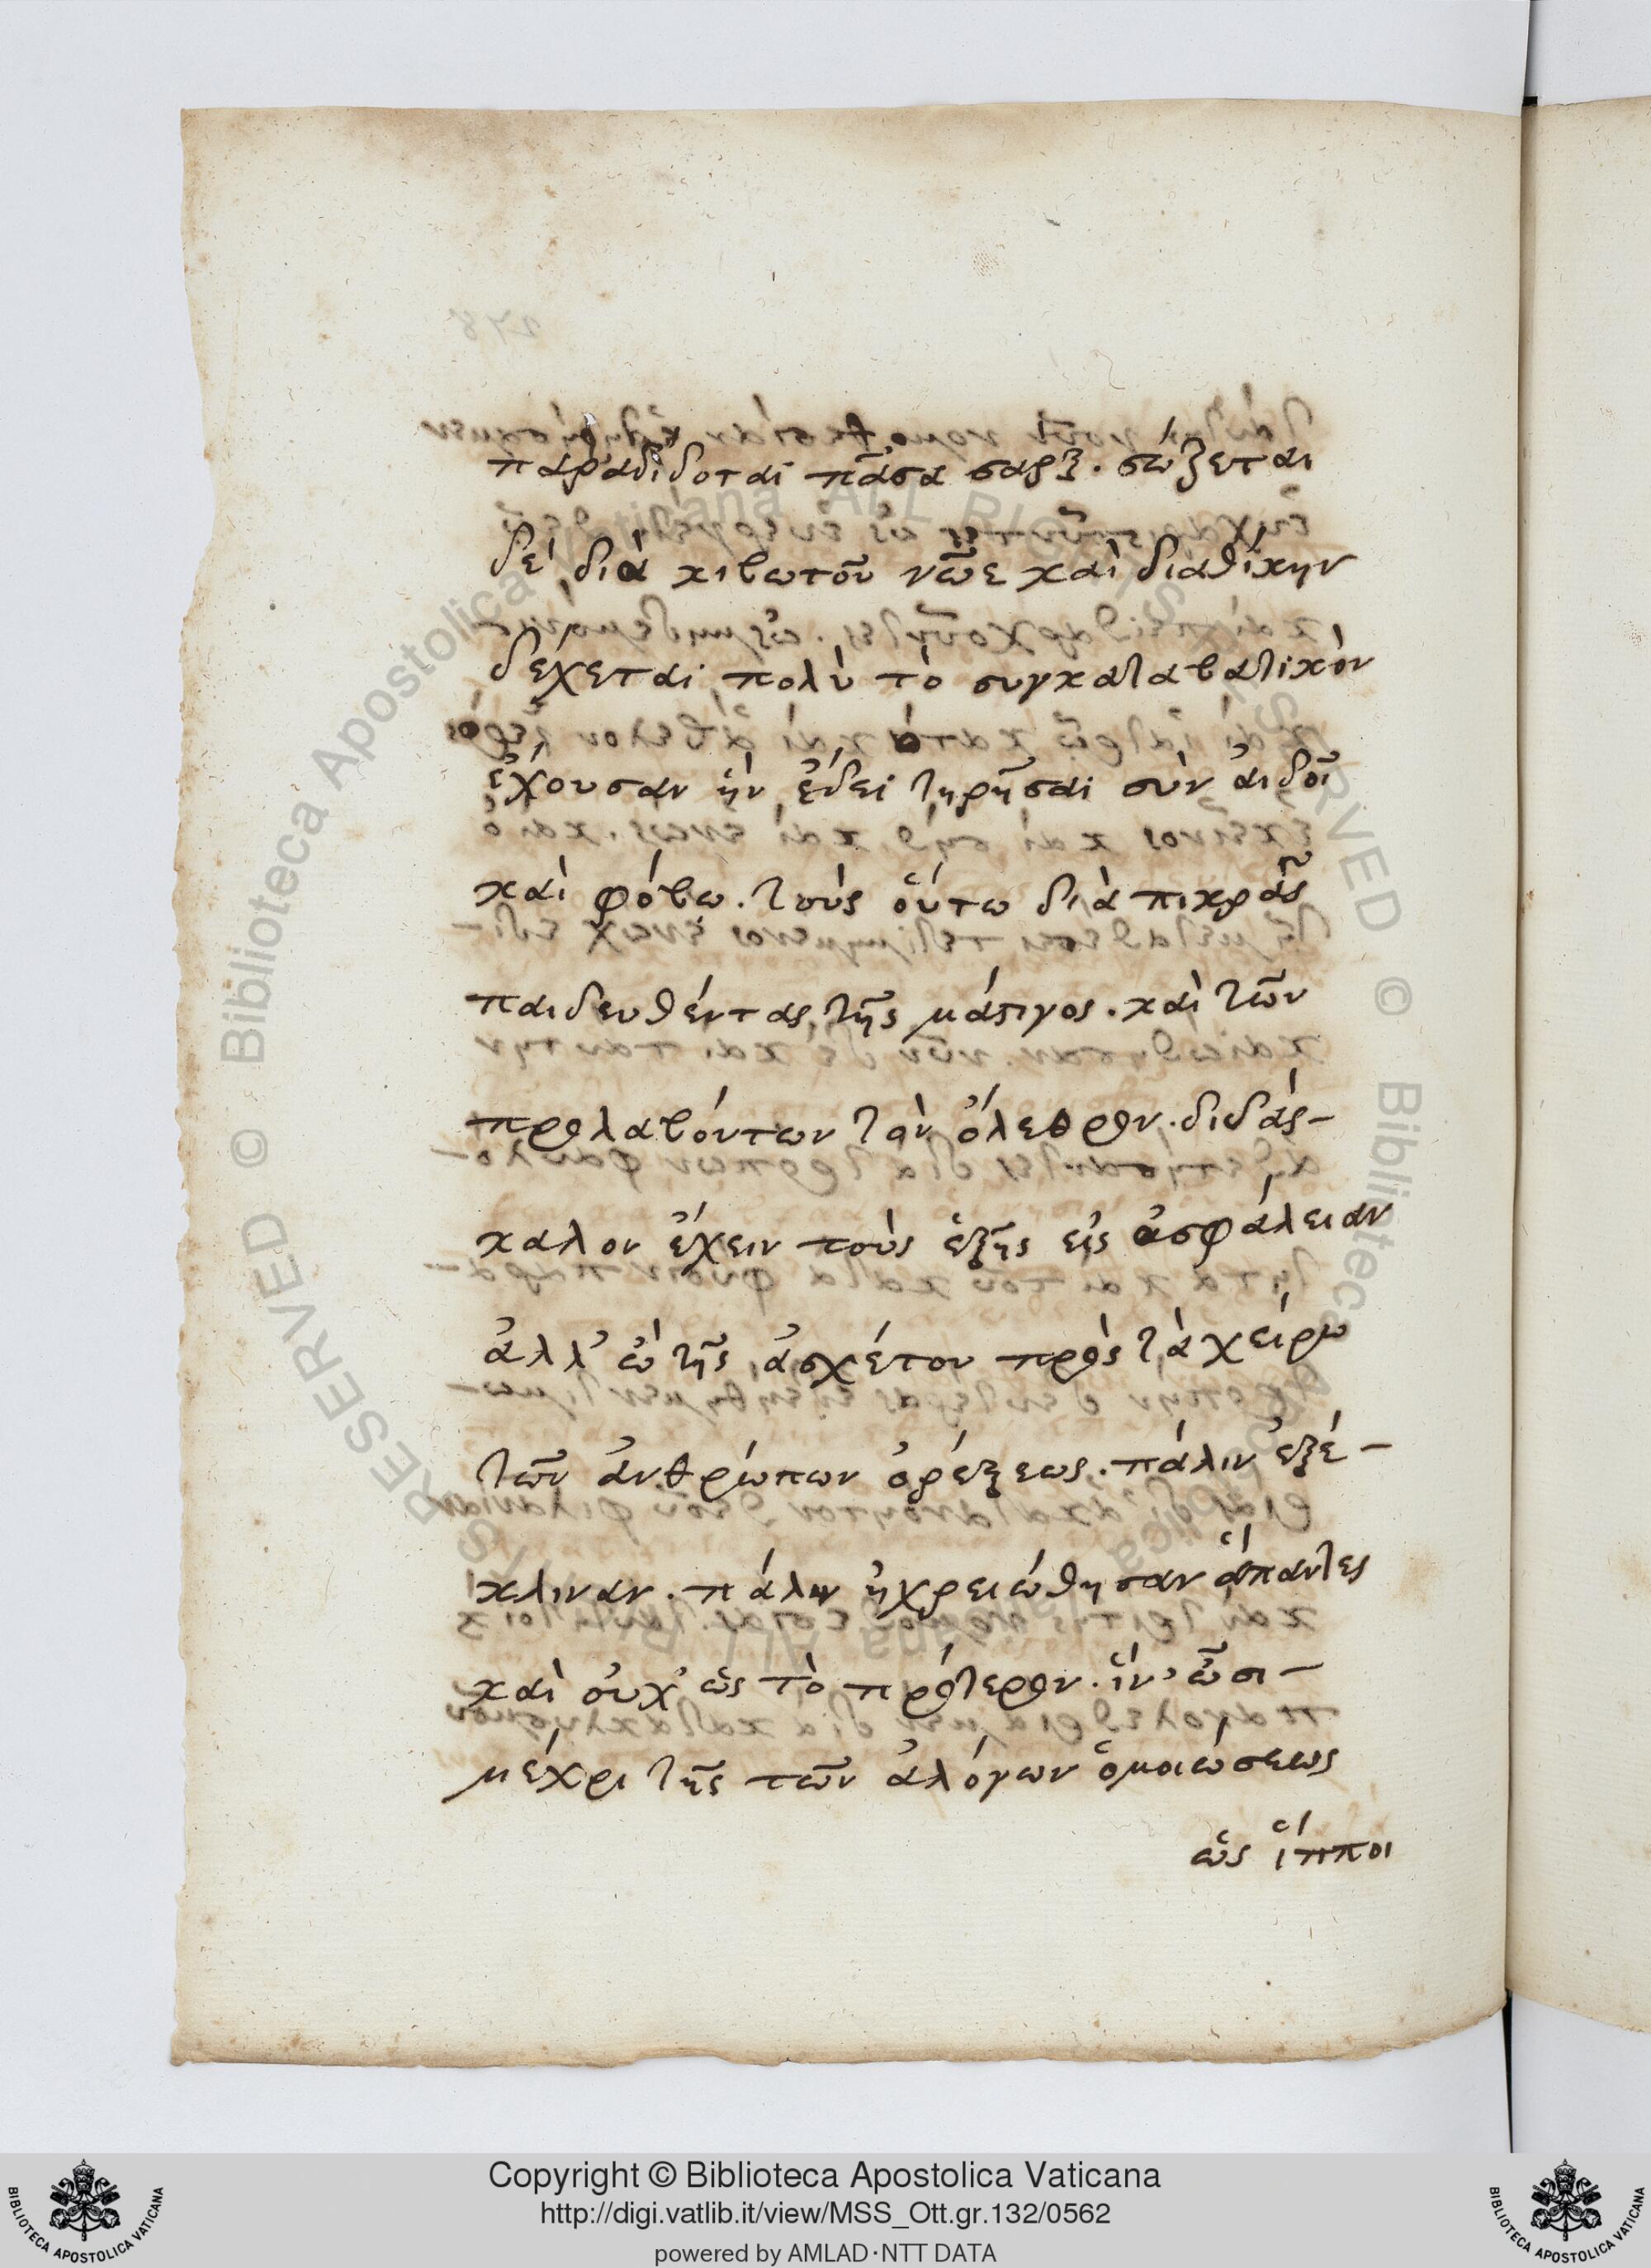 παραδίδοται πᾶσα σαρξ. σώζεται
δὲ διὰ κιβωτοῦ νῶε καὶ διαθήκην
δέχεται πολὺ τὸ συγκαταβατικὸν
ἔχουσαν ἣν ἔδει τηρῆσαι σὺν αἰδοῖ
καὶ φόβω. τοὺς οὕτω διὰ πικρᾶς
παιδευθέντας τῆς μάστιγος. καὶ τῶν
προλαβόντων τὸν ὄλεθρον. διδάσ-
καλον ἔχειν τοὺς ἑξῆς εἰς ἀσφάλειαν
ἀλλ' ὢ τῆς ἀσχέτου πρὸς τὰ χείρω
τῶν ἀνθρώπων ὀρέξεως. πάλιν ἐξέ-
κλιναν. πάλιν ἠχρειώθησαν ἅπαντες
καὶ οὐχ' ὡς τὸ πρότερον. ἵν' ὦσι-
μέχρι τῆς τῶν ἀλόγων ὁμοιώσεως
ὡς ἵπποι
Copyright © Biblioteca Apostolica Vaticana
http://digi.vatlib.it/view/MSS_Ott.gr.132/0562
powered by AMLAD·NTT DATA
BIBLIOTECA APOSTOLICA VATICANA
BIBLIOTECA APOSTOLICA VATICANA